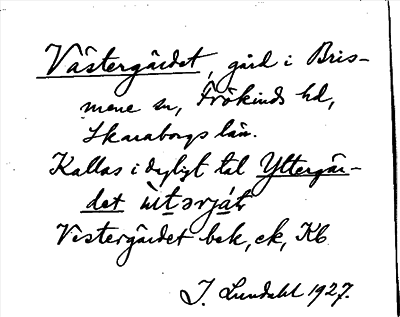 Västergärdet, gård i Bris-
mene sn, Frökinds hd,
Skaraborgs län.
Kallas i dgligt tal Yttergär-
det
Vestergärdet bek, ek, Kb
I. Lundahl 1927.